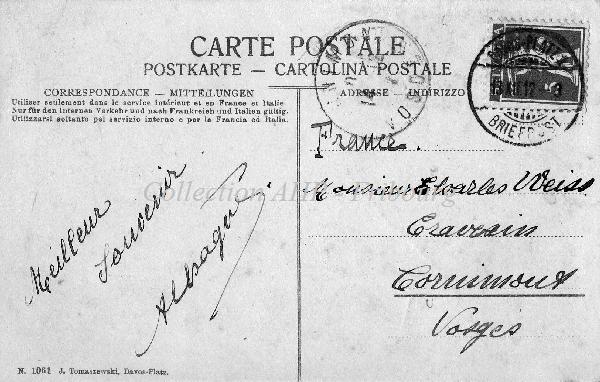 CARTE POSTALE
POSTKARTE — CARTOLINA POSTALE
CORRESPONDANCE — MITTEILUNGEN
Utiliser seulement dans le service intérieur et en France et Italie.
Nur für den internen Verkehr und nach Frankreich und Italien gültig.
Utilizzarsi soltanto pel servizio interno e per la Francia ed Italia.
ADRESSE — INDIRIZZO
BRIEFPOST
France.
Monsieur Charles Weiss
Cornimont
Vosges
Meilleur
Souvenir
Collection
N. 1061 J. Tomaszewski, Davos-Platz.